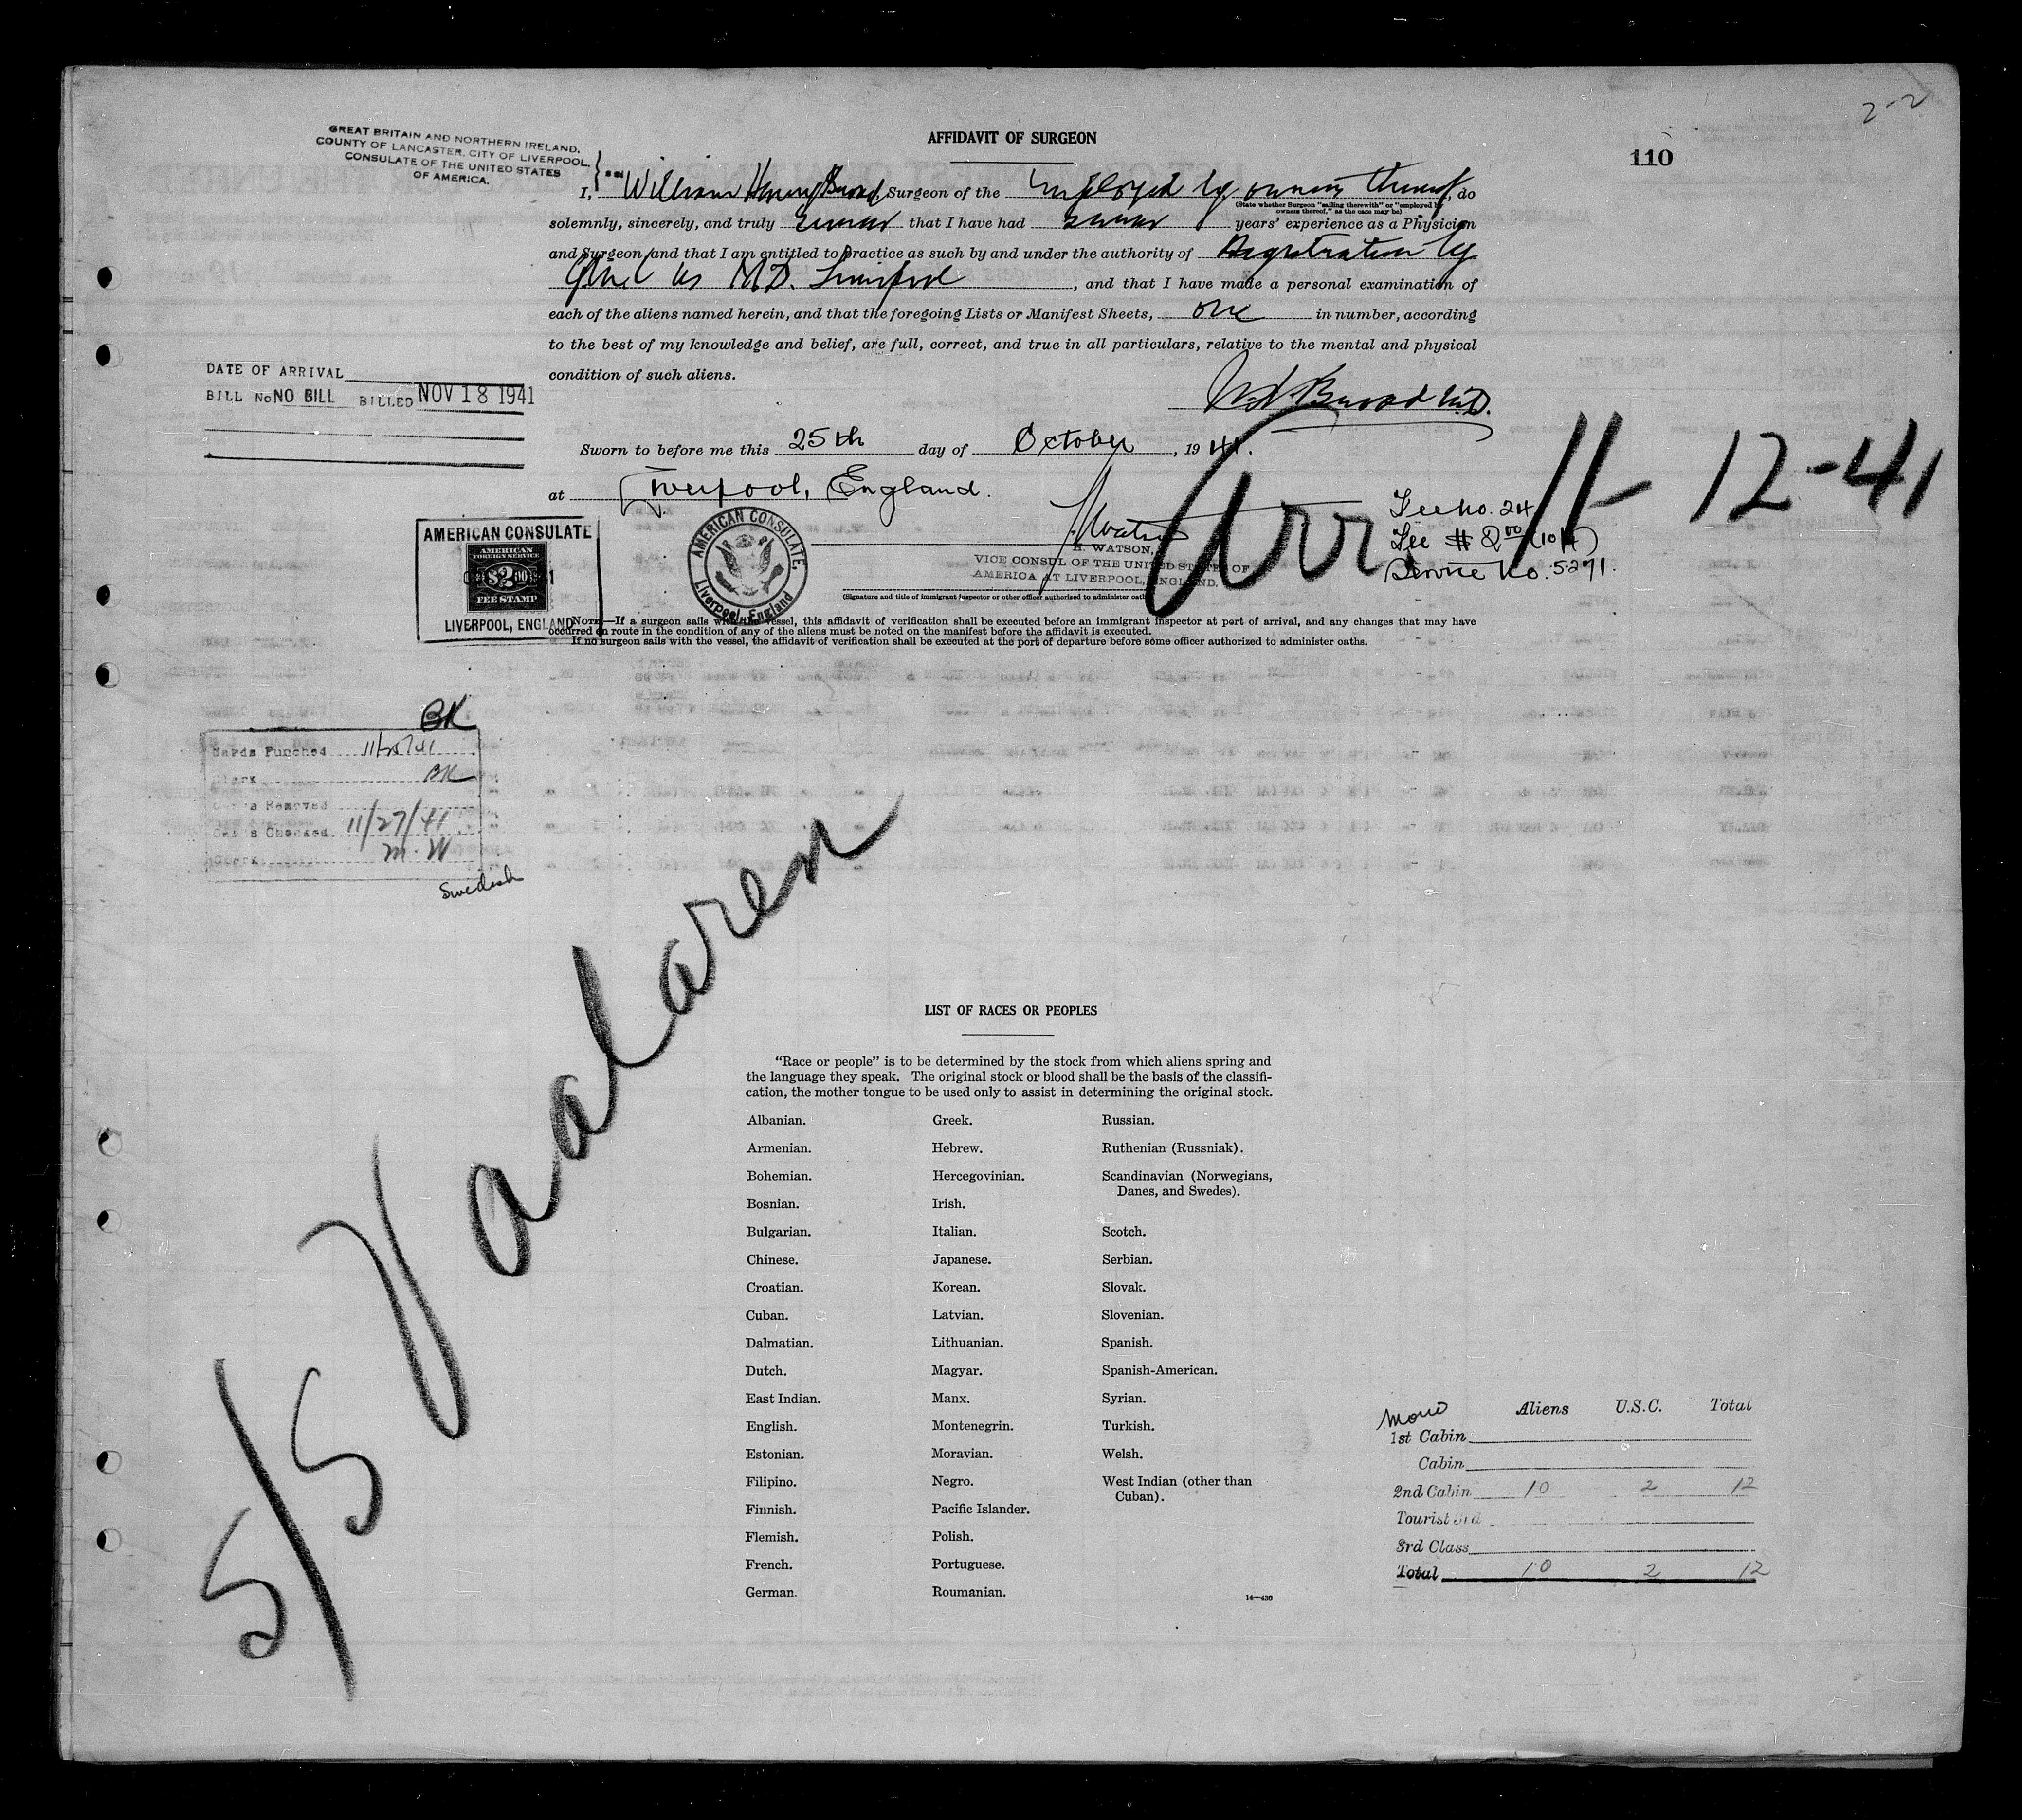 2-2
110
GREAT BRITAIN AND NORTHERN IRELAND,
COUNTY OF LANCASTER, CITY OF LIVERPOOL,
CONSULATE OF THE UNITED STATES
OF AMERICA.
AFFIDAVIT OF SURGEON
I, William Henry Broad, Surgeon of the Employed by owners thereof, do
(State whether Surgeon "sailing therewith" or "employed by
owners thereof," as the case may be)
solemnly, sincerely, and truly swear that I have had years' experience as a Physician
and Surgeon and that I am entitled to practice as such by and under the authority of Registration by
M.D. Liverpool, and that I have made a personal examination of
each of the aliens named herein, and that the foregoing Lists or Manifest Sheets, one in number, according
to the best of my knowledge and belief, are full, correct, and true in all particulars, relative to the mental and physical
condition of such aliens.
W.H. Broad M.D.
DATE OF ARRIVAL
BILL No NO BILL BILLED NOV 18 1941
Sworn to before me this 25th day of October, 1941.
at Liverpool, England.
Arr. 11-12-41
H. Watson
H. WATSON,
VICE CONSUL OF THE UNITED STATES OF
AMERICA AT LIVERPOOL, ENGLAND.
(Signature and title of immigrant inspector or other officer authorized to administer oaths)
No. 24
$ 2.00
Service No. 5271.
AMERICAN CONSULATE
AMERICAN
FOREIGN SERVICE
$2.00
FEE STAMP
LIVERPOOL, ENGLAND
AMERICAN CONSULATE,
Liverpool, England
NOTE.—If a surgeon sails with the vessel, this affidavit of verification shall be executed before an immigrant inspector at port of arrival, and any changes that may have
occurred en route in the condition of any of the aliens must be noted on the manifest before the affidavit is executed.
If no surgeon sails with the vessel, the affidavit of verification shall be executed at the port of departure before some officer authorized to administer oaths.
BK
Cards Punched 11/25/41
Clerk BK
Cards Removed
Cards Checked 11/27/41
Clerk M.W
Swedish
S/S Vaalaren
LIST OF RACES OR PEOPLES
"Race or people" is to be determined by the stock from which aliens spring and
the language they speak. The original stock or blood shall be the basis of the classifi-
cation, the mother tongue to be used only to assist in determining the original stock.
Albanian.
Armenian.
Bohemian.
Bosnian.
Bulgarian.
Chinese.
Croatian.
Cuban.
Dalmatian.
Dutch.
East Indian.
English.
Estonian.
Filipino.
Finnish.
Flemish.
French.
German.
Greek.
Hebrew.
Hercegovinian.
Irish.
Italian.
Japanese.
Korean.
Latvian.
Lithuanian.
Magyar.
Manx.
Montenegrin.
Moravian.
Negro.
Pacific Islander.
Polish.
Portuguese.
Roumanian.
Russian.
Ruthenian (Russniak).
Scandinavian (Norwegians,
Danes, and Swedes).
Scotch.
Serbian.
Slovak.
Slovenian.
Spanish.
Spanish-American.
Syrian.
Turkish.
Welsh.
West Indian (other than
Cuban).
14—430
Aliens U.S.C. Total
1st Cabin
Cabin
2nd Cabin 10 2 12
Tourist 3rd
3rd Class
Total 10 2 12